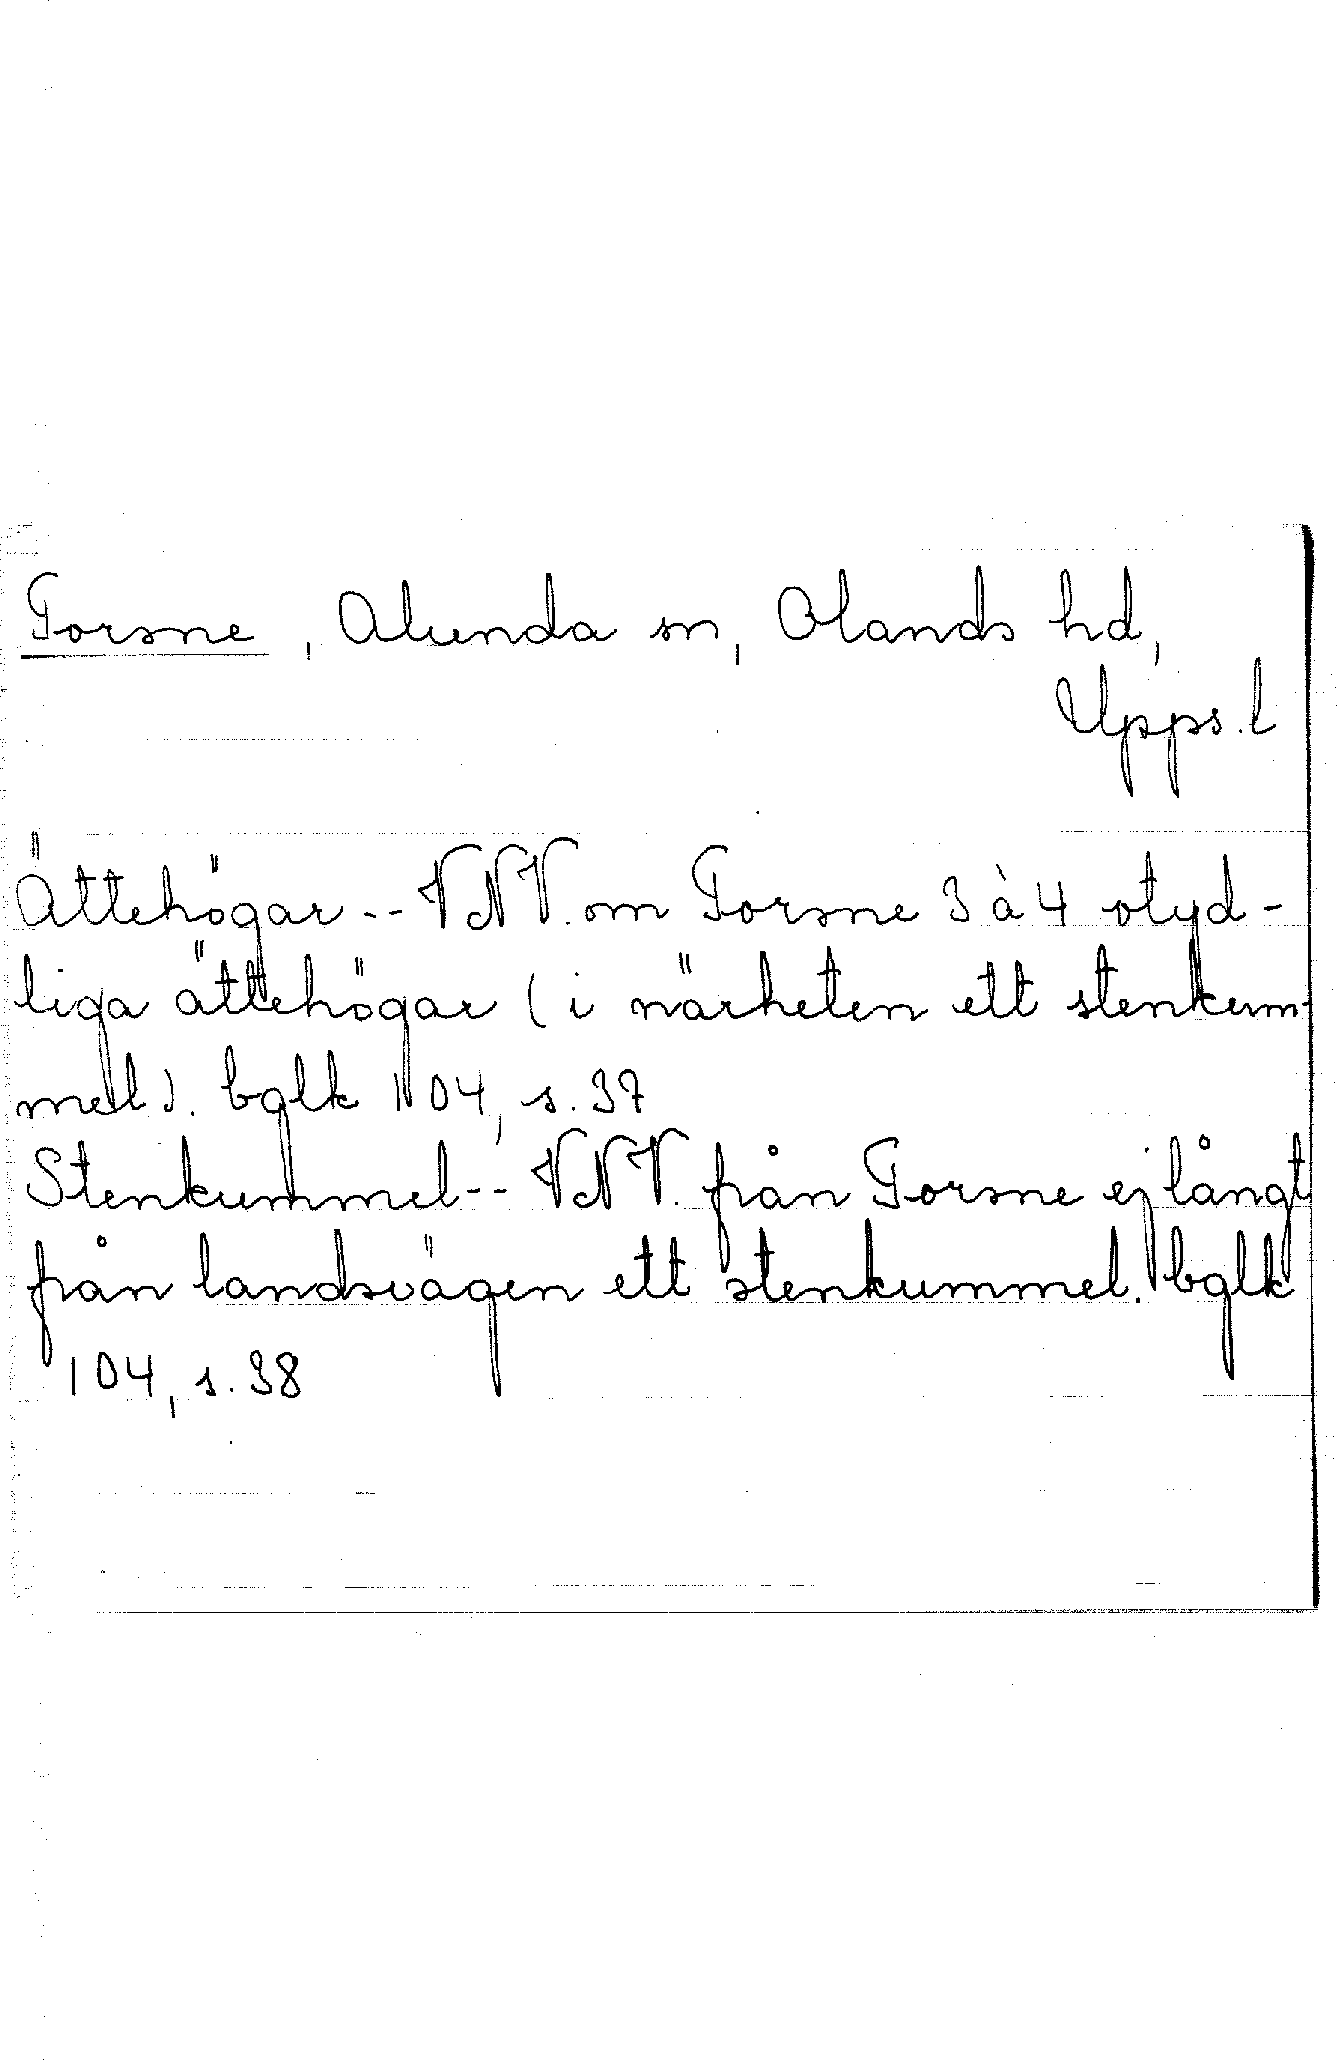 Torsne, Alunda sn, Olands hd,
Upps. l
Ättehögar -- VNV. om Torsne 3 à 4 otyd-
liga ättehögar (i närheten ett stenkum-
mel). bglk 104, s. 37
Stenkummel -- VNV. från Torsne ej långt
från landsvägen ett stenkummel. bglk
104, s. 38